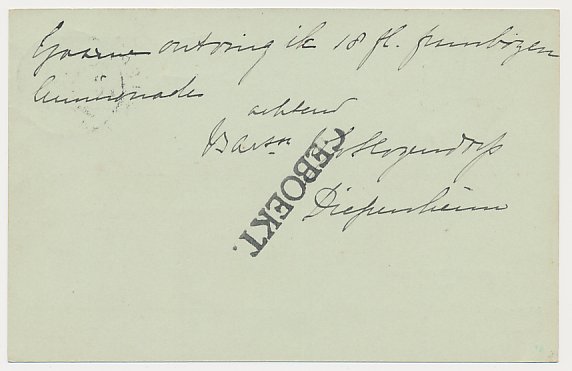 Gaarne ontving ik 18 fl. frambozen
limonade
achtend
Barsse v Hogendorp
Diepenheim
GEBOEKT.